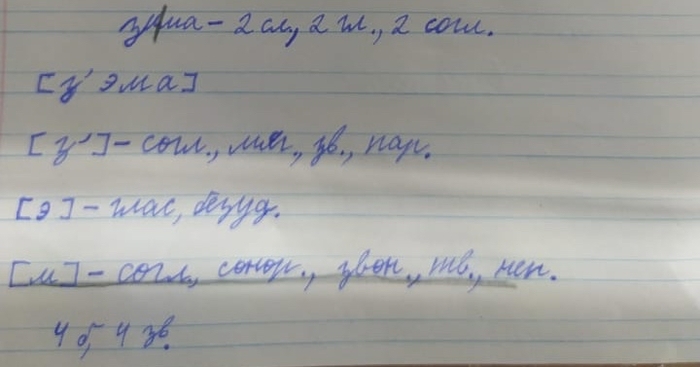 зима - 2 сл., 2 гл., 2 согл.
[з' эма]
[з'] - согл., мяг., зв., пар.
[э] - глас, безуд.
[м] - согл., сонор., звон., тв., неп.
4 б, 4 зв.